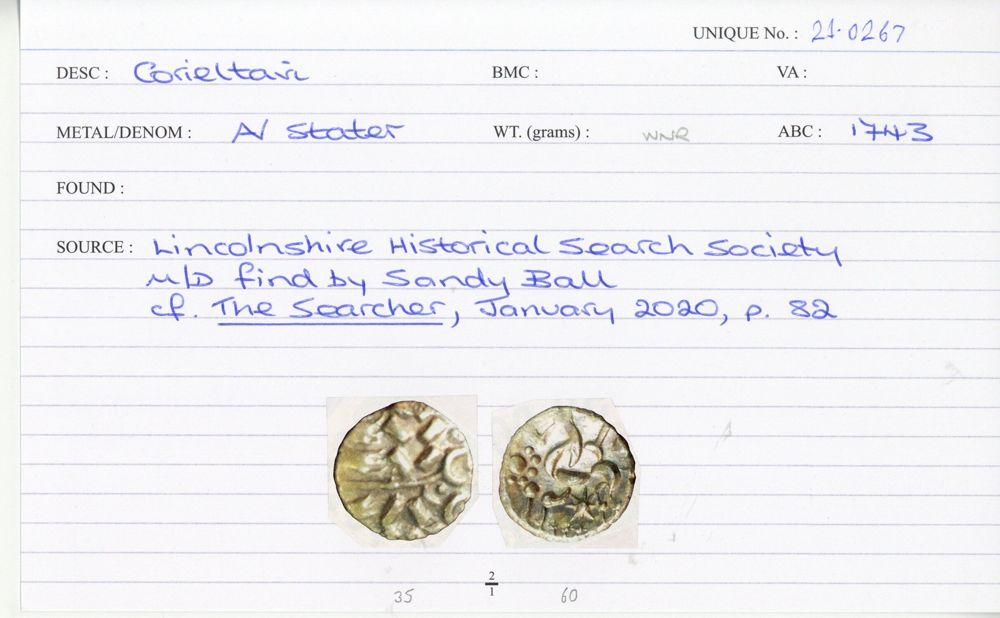 UNIQUE No. : 21·0267
DESC : Corieltavi BMC : VA :
METAL/DENOM : AV Stater WT. (grams) : WNR ABC : 1743
FOUND :
SOURCE : Lincolnshire Historical Search Society
M/D find by Sandy Ball
cf. The Searcher, January 2020, p. 82
2
1
35 60